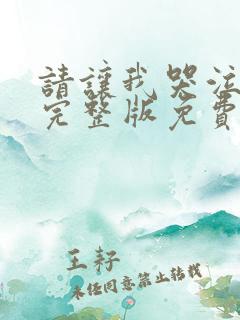 請讓我哭泣
完整版免費
王耔
未经同意禁止转载